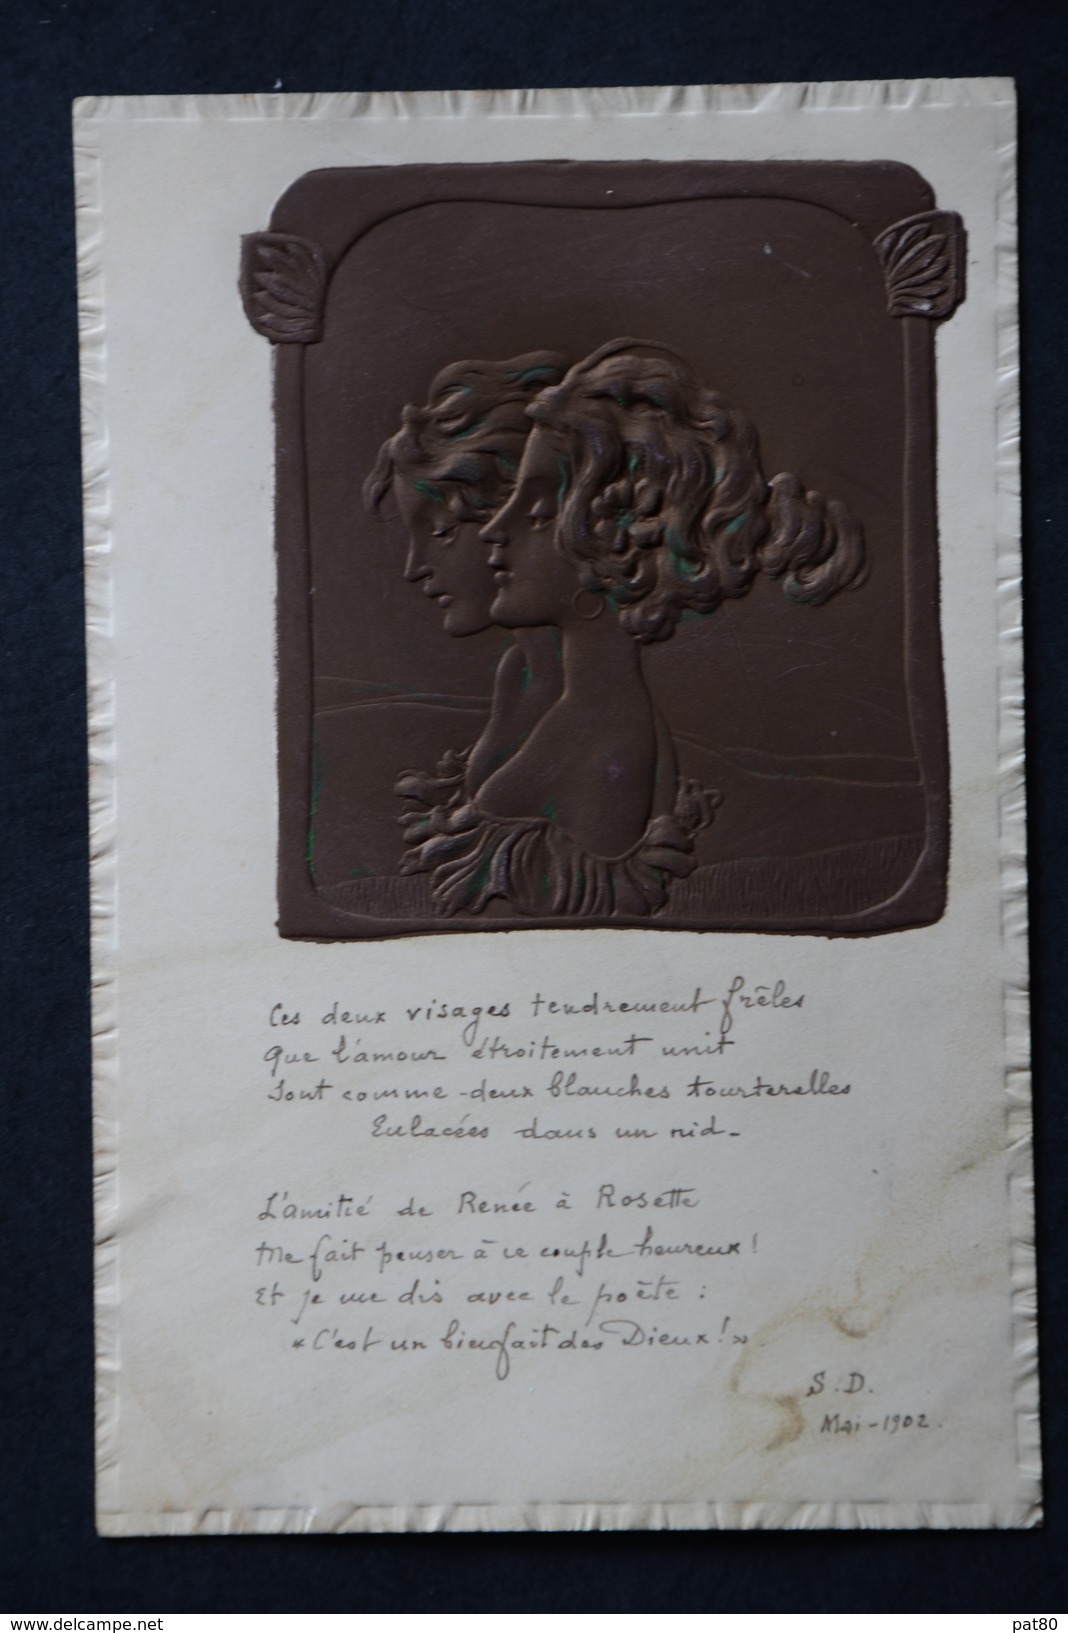 Ces deux visages tendrement frêles
Que l'amour étroitement unit
Sont comme deux blanches tourterelles
Enlacées dans un nid -
L'amitié de Renée à Rosette
Me fait penser à ce couple heureux !
Et je me dis avec le poète :
« C'est un bienfait des Dieux ! »
S. D.
Mai - 1902.
www.delcampe.net
pat80